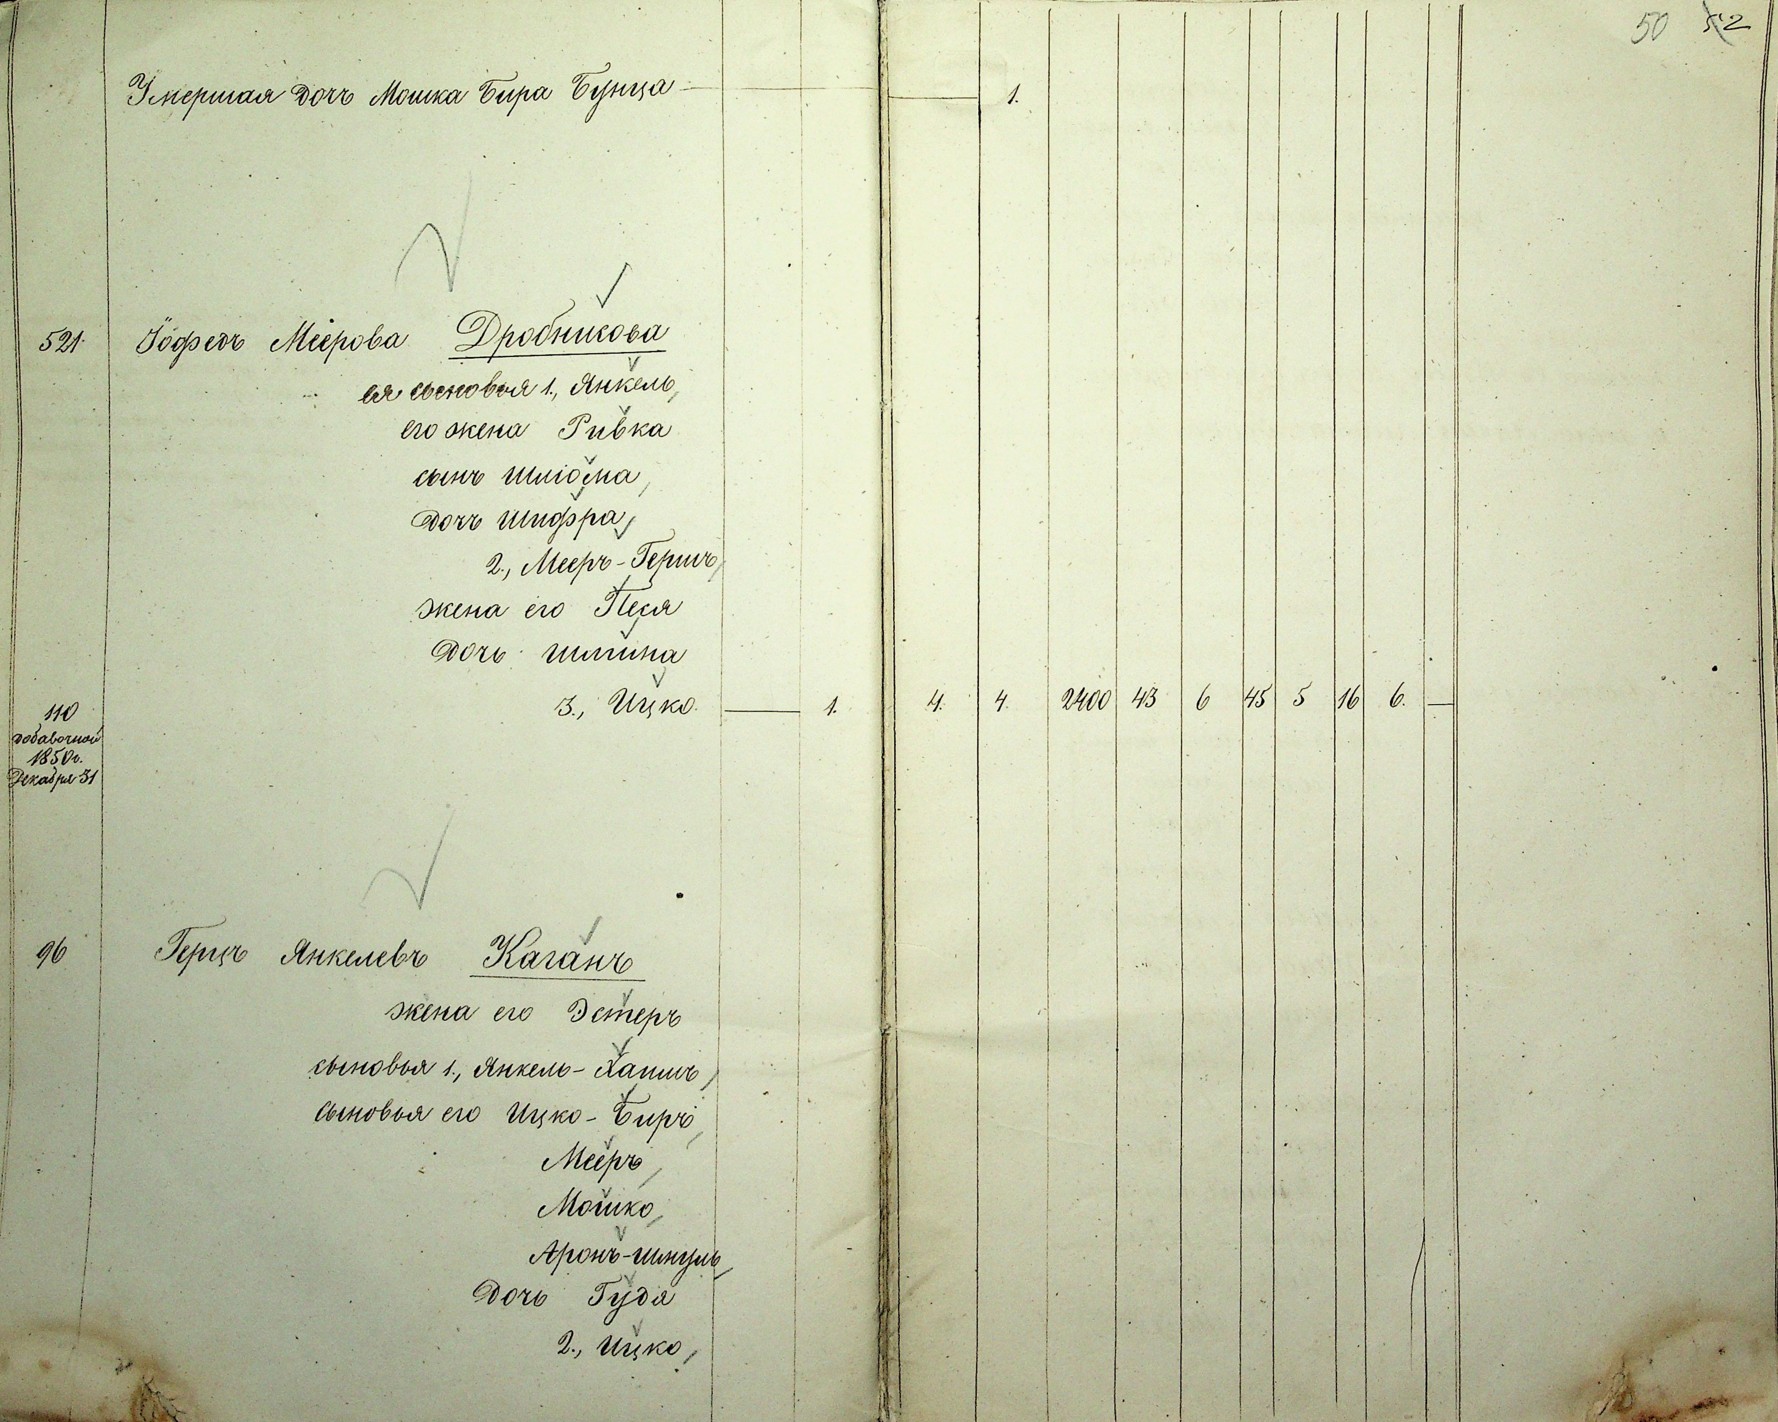 50 52
Умершая дочъ Мошка Бира Бунца 1.
521. Іофедъ Меерова Дробникова
ея сыновья 1., Янкель,
его жена Ривка
сынъ Шліома,
дочъ Шифра,
2., Мееръ-Гершъ,
жена его Песя
дочь
3., Ицко. 1. 4. 4. 2400 43 6 45 5 16 6. —
110
добавочной
1850г.
Декабря 31
96 Герцъ Янкелевъ Каганъ
жена его Эстеръ
сыновья 1., Янкель-
сыновья его Ицко-Биръ,
Мееръ,
Мошко,
Аронъ-Шмуль,
дочь Гудя
2., Ицко,